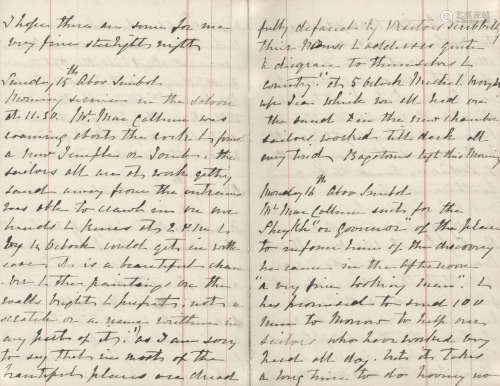 I hope there are some for me
very fine starlight night
Sunday 15th Aboo Simbel
Morning service in the saloon
at 11.30. Mr. MacCallum was
roaming about the rocks & found
a new Temple or Tomb. the
sailors all are at work getting
sand away from the entrance
was able to crawl in on our
hands & knees at 2 P.M. &
by 6 oclock could get in with
ease it is a beautiful cham
ber & the paintings on the
walls bright & perfect, not a
scratch or a name written in
any part of it. as I am sorry
to say that in most of the
beautiful places are dread
fully defaced by visitors scribbling
their names & addresses quite
a disgrace to themselves &
country. at 5 oclock Michel brought
up Tea which we all had on
the sand & in the new chamber
sailors worked till dark all
very tired Bagstones left this Morning
Monday 16th Aboo Simbel
Mr. MacCallum sent for the
Sheykh or Governor of the place
to inform him of the discovery
he came in the afternoon
a very fine looking man &
has promised to send 100
men to Morrow to help our
sailors who have worked very
hard all day. but it takes
a long time to do having no